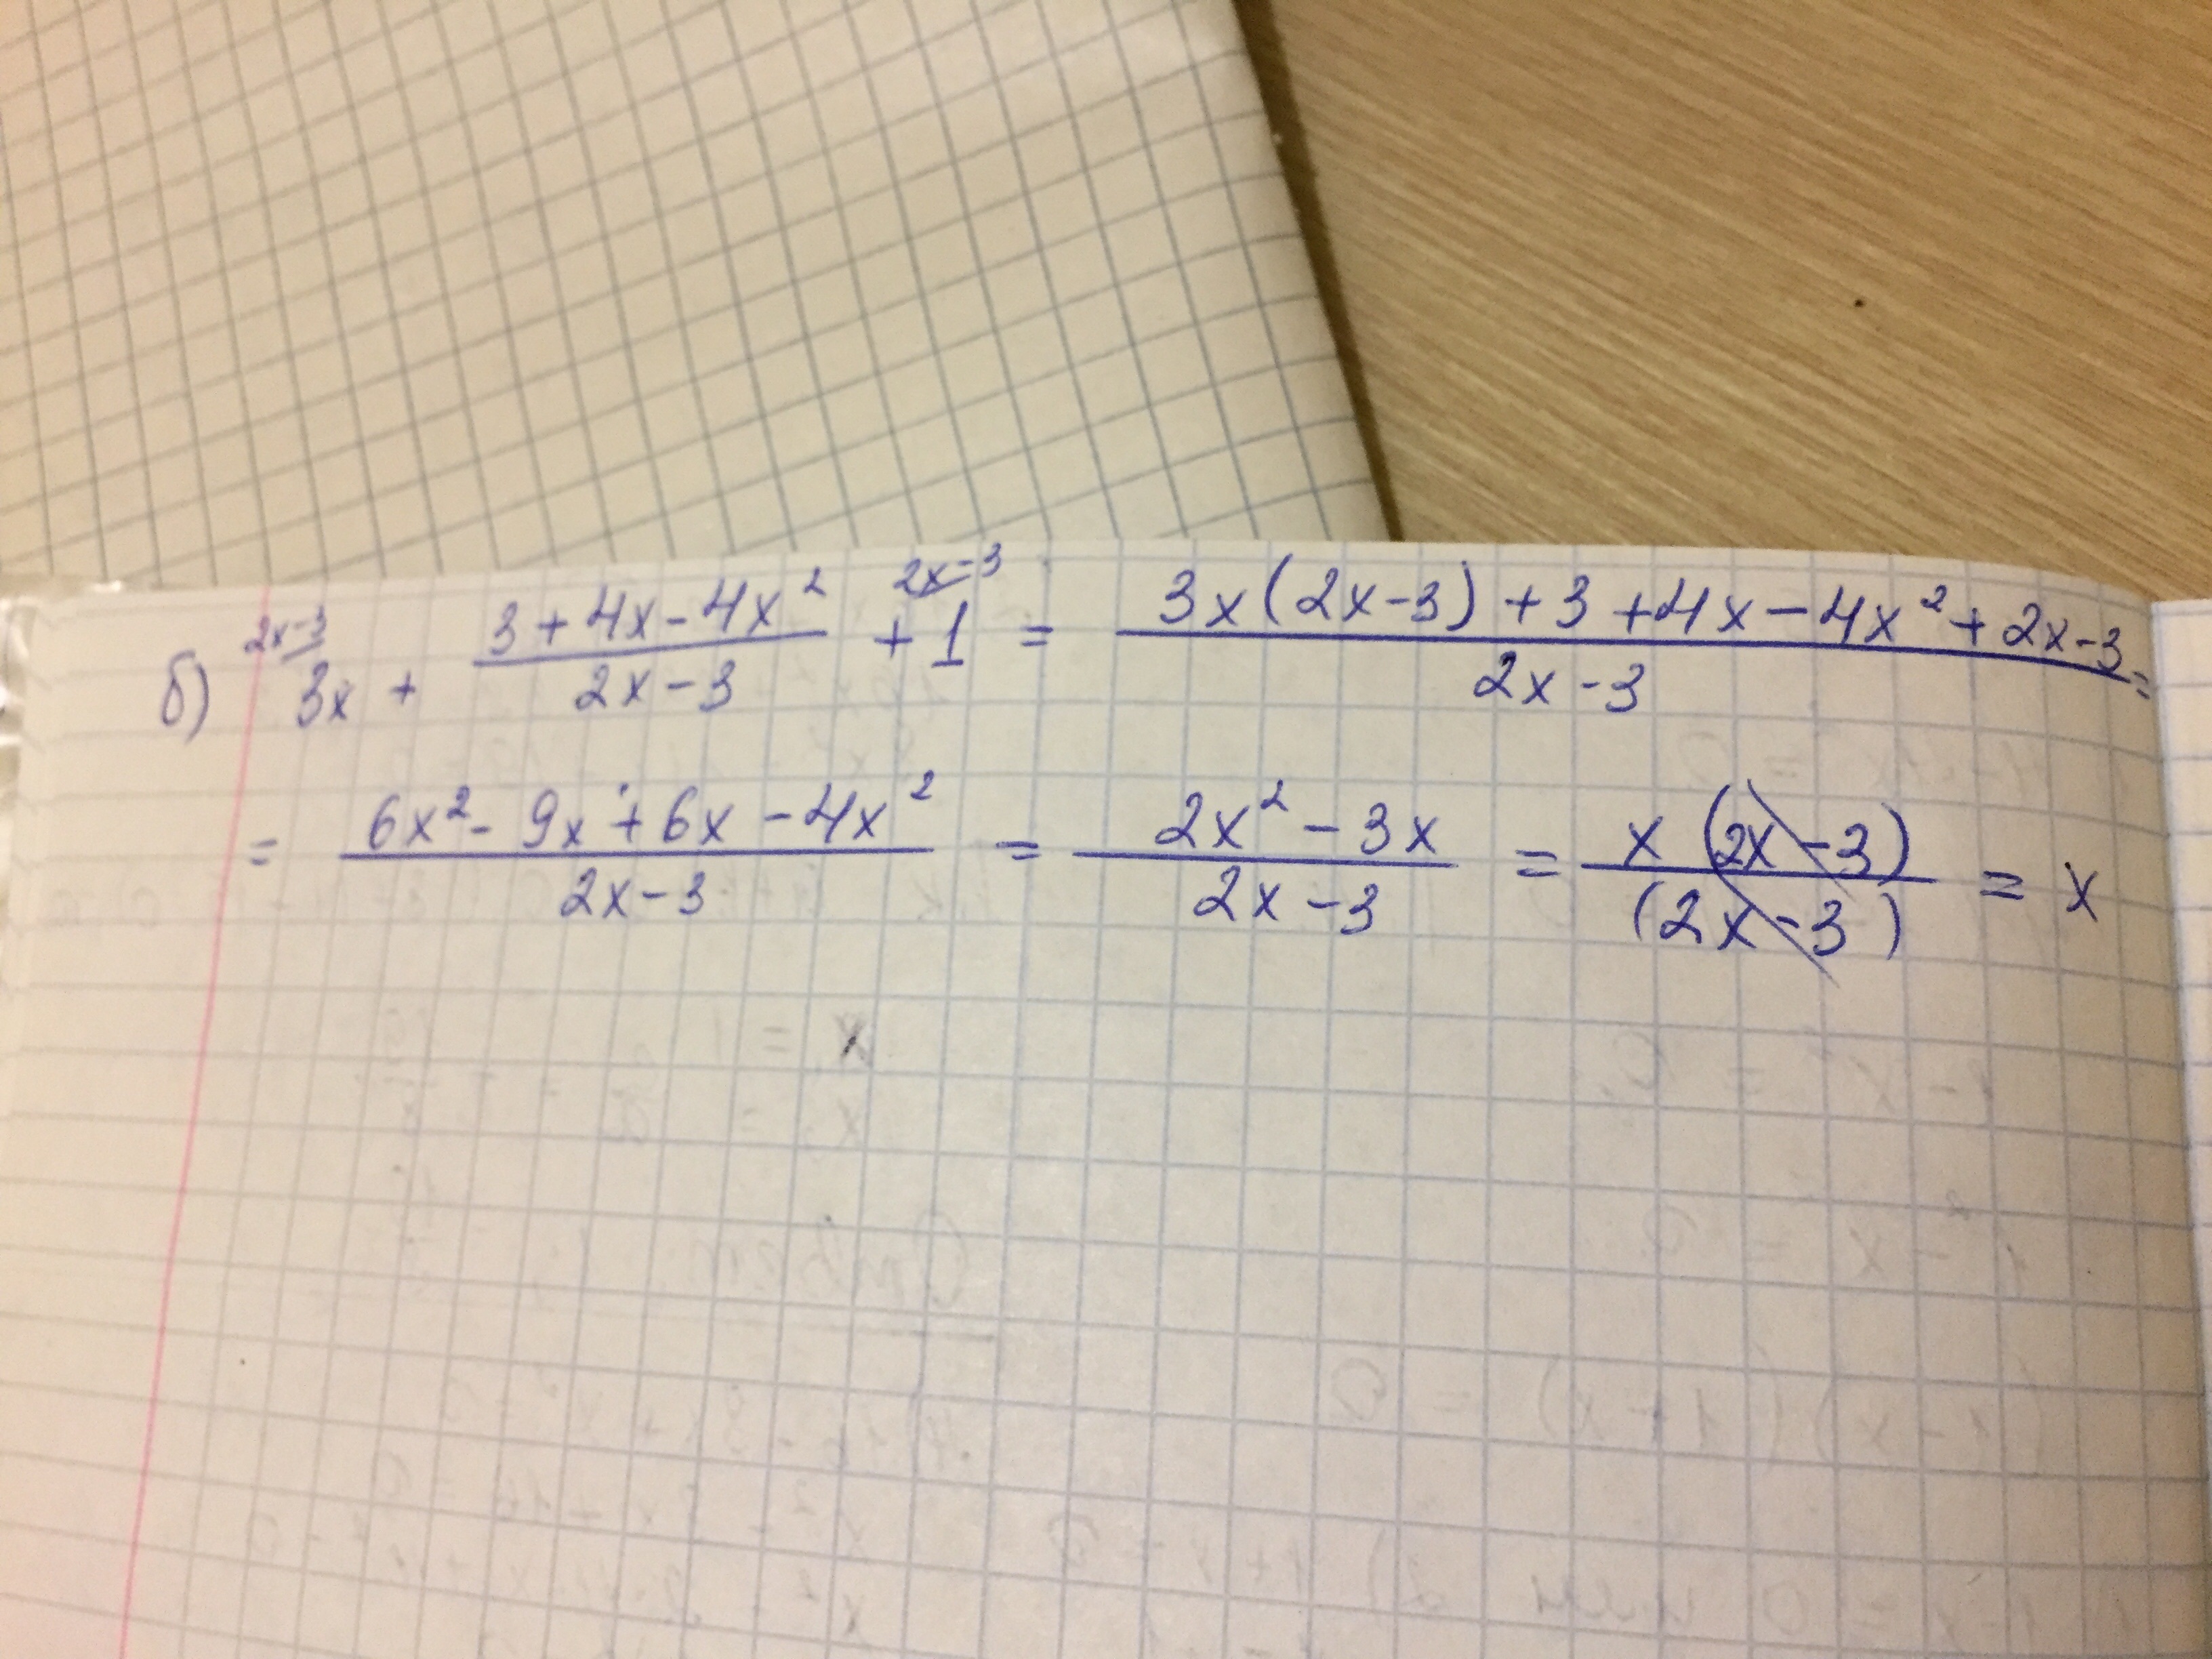 б) 2x-3 3x + (3+4x-4x²)/(2x-3) + 1 2x-3 = (3x(2x-3)+3+4x-4x²+2x-3)/(2x-3) =
= (6x²-9x+6x-4x²)/(2x-3) = (2x²-3x)/(2x-3) = x(2x-3)/(2x-3) = x